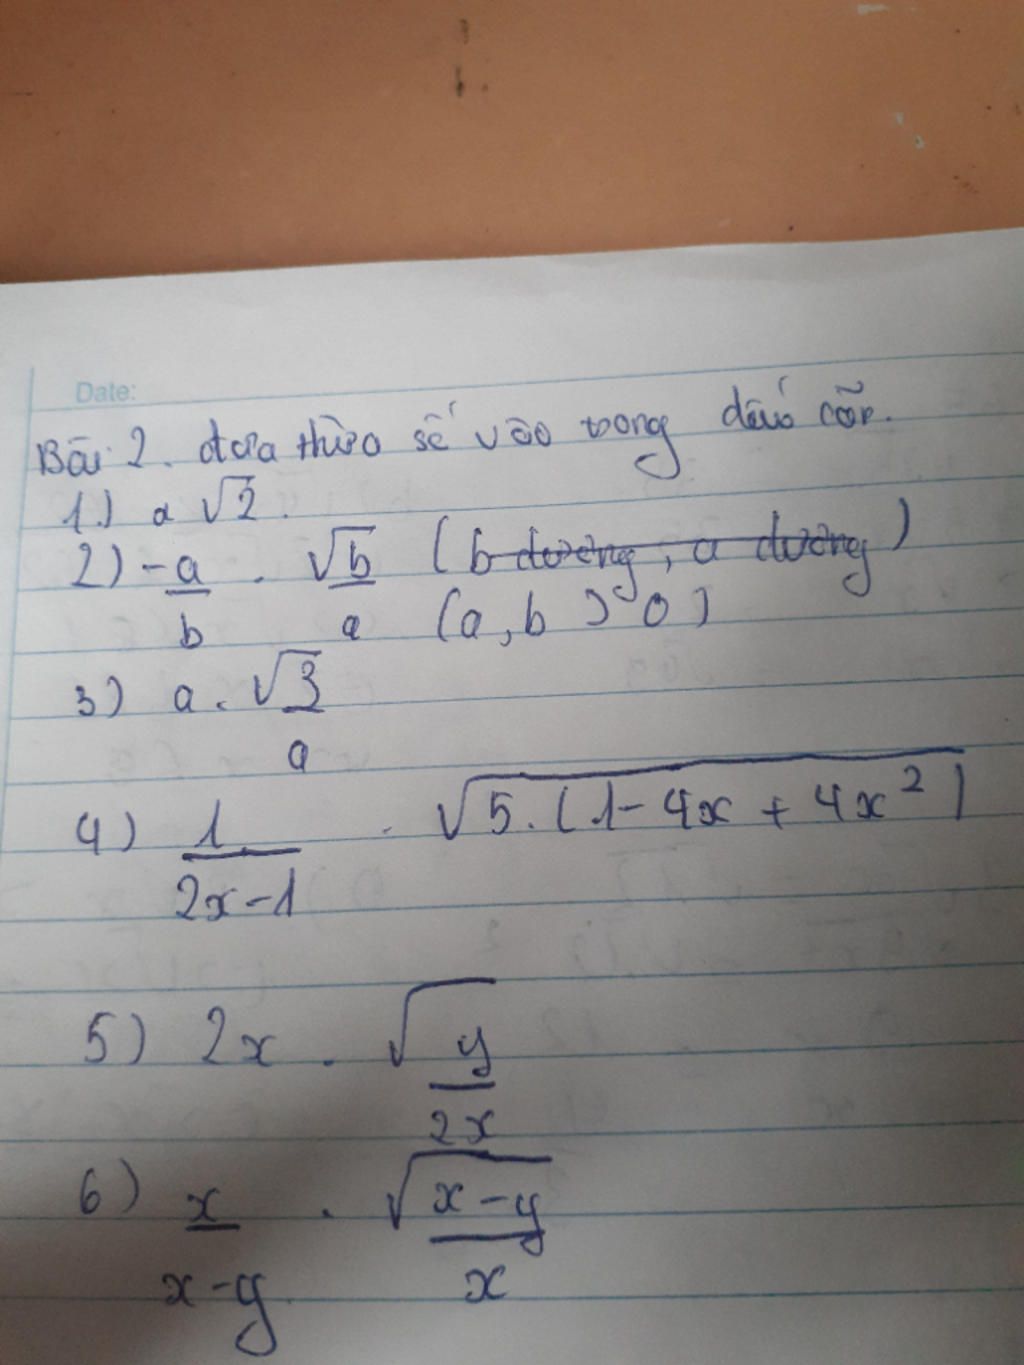 Date:
Bài 2. đưa thừa số vào trong dấu căn.
1.) a √2.
2) -a/b . √(b/a) (b dương, a dương)
(a, b > 0)
3) a . √(3/a)
4) 1/(2x-1) . √(5.(1-4x+4x²))
5) 2x . √(y/2x)
6) x/(x-y) . √((x-y)/x)